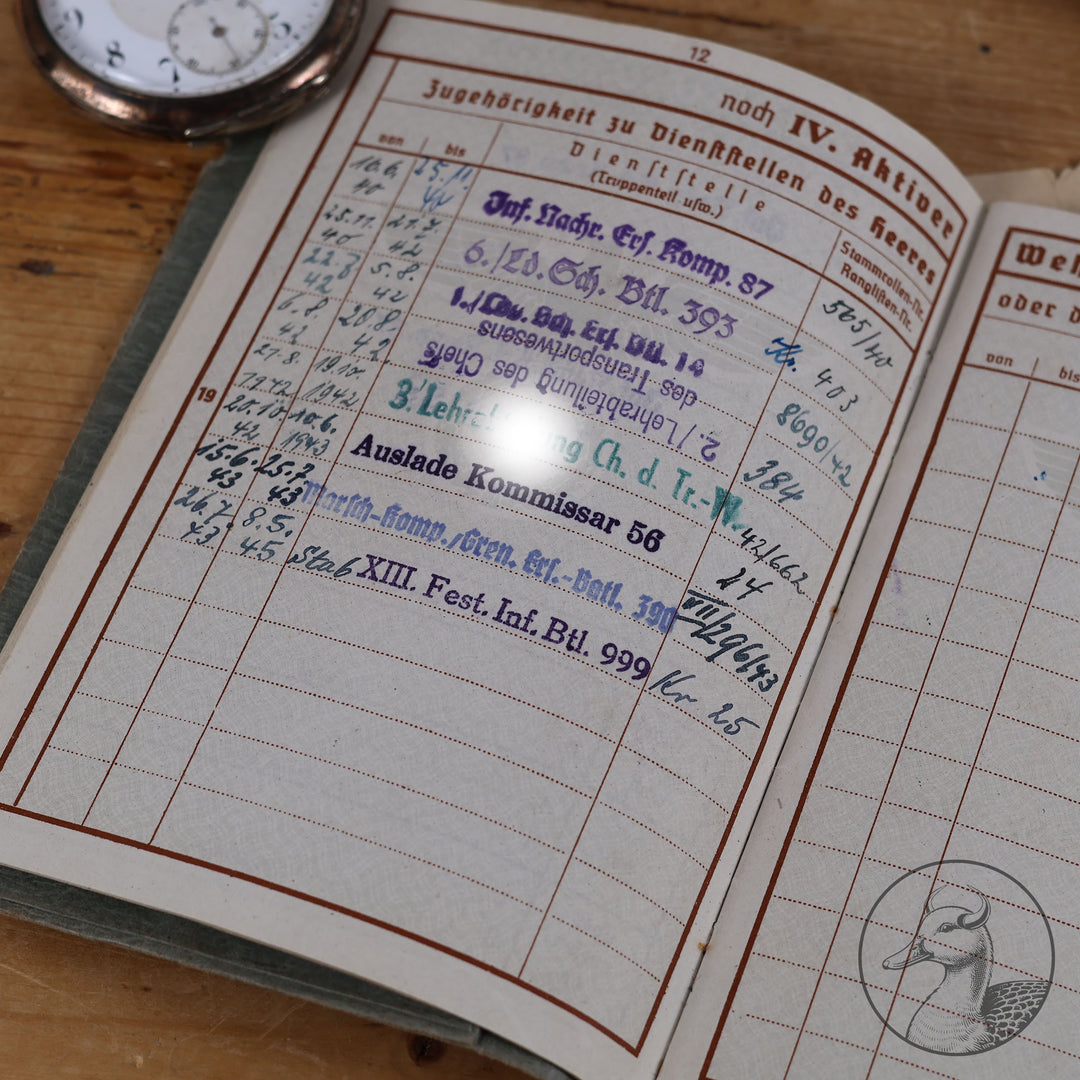 12
noch IV. Aktiver
Zugehörigkeit zu Dienststellen des Heeres
von bis Dienststelle
(Truppenteil usw.)
Stammrollen-Nr.
Ranglisten-Nr.
16.6. 40 25.11. 40 Inf. Nachr. Ers. Komp. 87 565/40
25.11. 40 21.7. 42 6./Ld. Sch. Btl. 393 Kr. 403
22.7. 42 5.8. 42 1./Ldw. Sch. Ers. Btl. 8690/42
6.8. 42 20.8. 42 2./Lehrabteilung des Chefs
des Transportwesens 384
21.8. 19.10. 1942 1942 3. Ch. d. Tr.-W. 42/662
19 20.10. 42 10.6. 1943 Auslade Kommissar 56 24
15.6. 43 25.7. 43 Marsch-Komp./Gren. Ers.-Batl. 390 VII/296/43
26.7. 43 8.5. 45 Stab XIII. Fest. Inf. Btl. 999 Kr 25
oder d
von bis